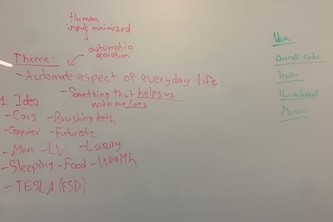 Human
input minimized
automatic
operation
Theme:
- Automate aspect of everyday life
- Something that helps us
with our lives
1. Idea:
- Cars - Brushing teeth
- Computer - Futuristic
- Men - LV - Luxury
- Sleeping - Food - Wealth
- TESLA (FSD)
Overall Code
Thumbnail